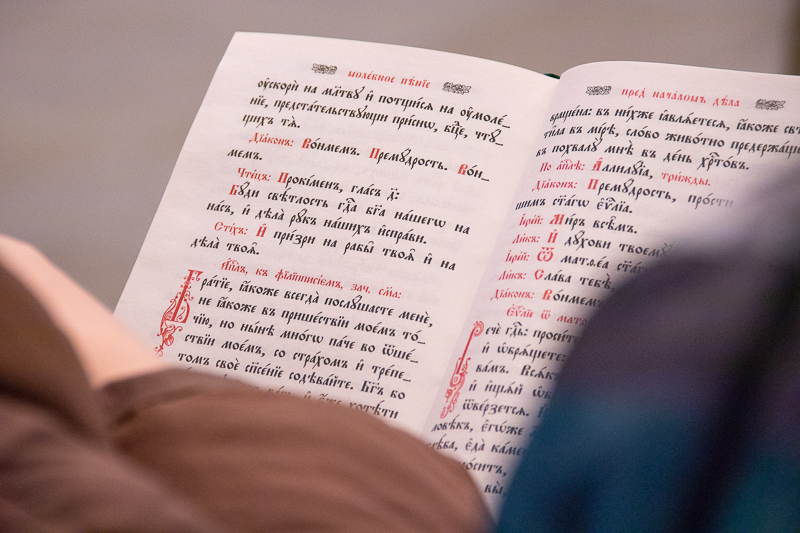 моле́бное пѣ́нїе
ᲂу҆скорѝ на мл҃тву и҆ потщи́сѧ на ᲂу҆моле́_
нїе, предста́тельствующи при́снѡ, бцⷣе, чтꙋ́_
щихъ тѧ̀.
Дїа́конъ: Во́нмемъ. Премꙋ́дрость. Во́н_
мемъ.
Чте́цъ: Проки́менъ, гла́съ д҃:
Бꙋ́ди свѣ́тлость гдⷭ҇а бг҃а на́шегѡ на
на́съ, и҆ дѣла̀ рꙋ́къ на́шихъ и҆спра́ви.
Сті́хъ: И҆ при́зри на рабы̑ твоѧ̑ и҆ на
дѣла̀ твоѧ̑.
А҆пⷭ҇лъ, къ фїлїпписі́ємъ, зач. см҃а:
Бра́тїе, ꙗ҆́коже всегда̀ послꙋ́шасте менѐ,
не ꙗ҆́коже въ прише́ствїи мое́мъ то́_
чїю, но нн҃ѣ мно́гѡ па́че во ѿше́_
ствїи мое́мъ, со стра́хомъ и҆ тре́пе_
томъ своѐ спⷭ҇е́нїе содѣ́вайте. Бг҃ъ во
хотѣ́ти
пред̾ нача́ломъ дѣ́ла
враще́на: въ ни́хже ꙗ҆влѧ́етесѧ, ꙗ҆́коже свѣ
ти̑ла въ мі́рѣ, сло́во живо́тно придержа́щ
въ похвалꙋ̀ мнѣ̀ въ де́нь хрⷭ҇то́въ.
По а҆пⷭ҇лѣ: А҆ллилꙋ́їа, три́жды.
Дїа́конъ: Премꙋ́дрость, про́сти
шимъ ст҃а́гѡ є҆ѵⷢ҇лїа.
І҆ере́й: Ми́ръ всѣ̑мъ.
Ли́къ: И҆ дꙋ́хови твоемꙋ̀
І҆ере́й: Ѿ матѳе́а ст҃а́
Ли́къ: Сла́ва тебѣ̀
Дїа́конъ: Во́нмемъ
Є҆ѵⷢ҇лїе ѿ мат
Речѐ гдⷭ҇ь: проси́т
и҆ ѡ҆брѧ́щете:
ва́мъ. Всѧ́к
и҆ и҆щѧ́й ѡ҆б
ѿве́рзетсѧ.
ловѣ́къ, є҆гѡ́же
хлѣ́ба, є҆да̀ ка́ме
про́ситъ,
вы̀